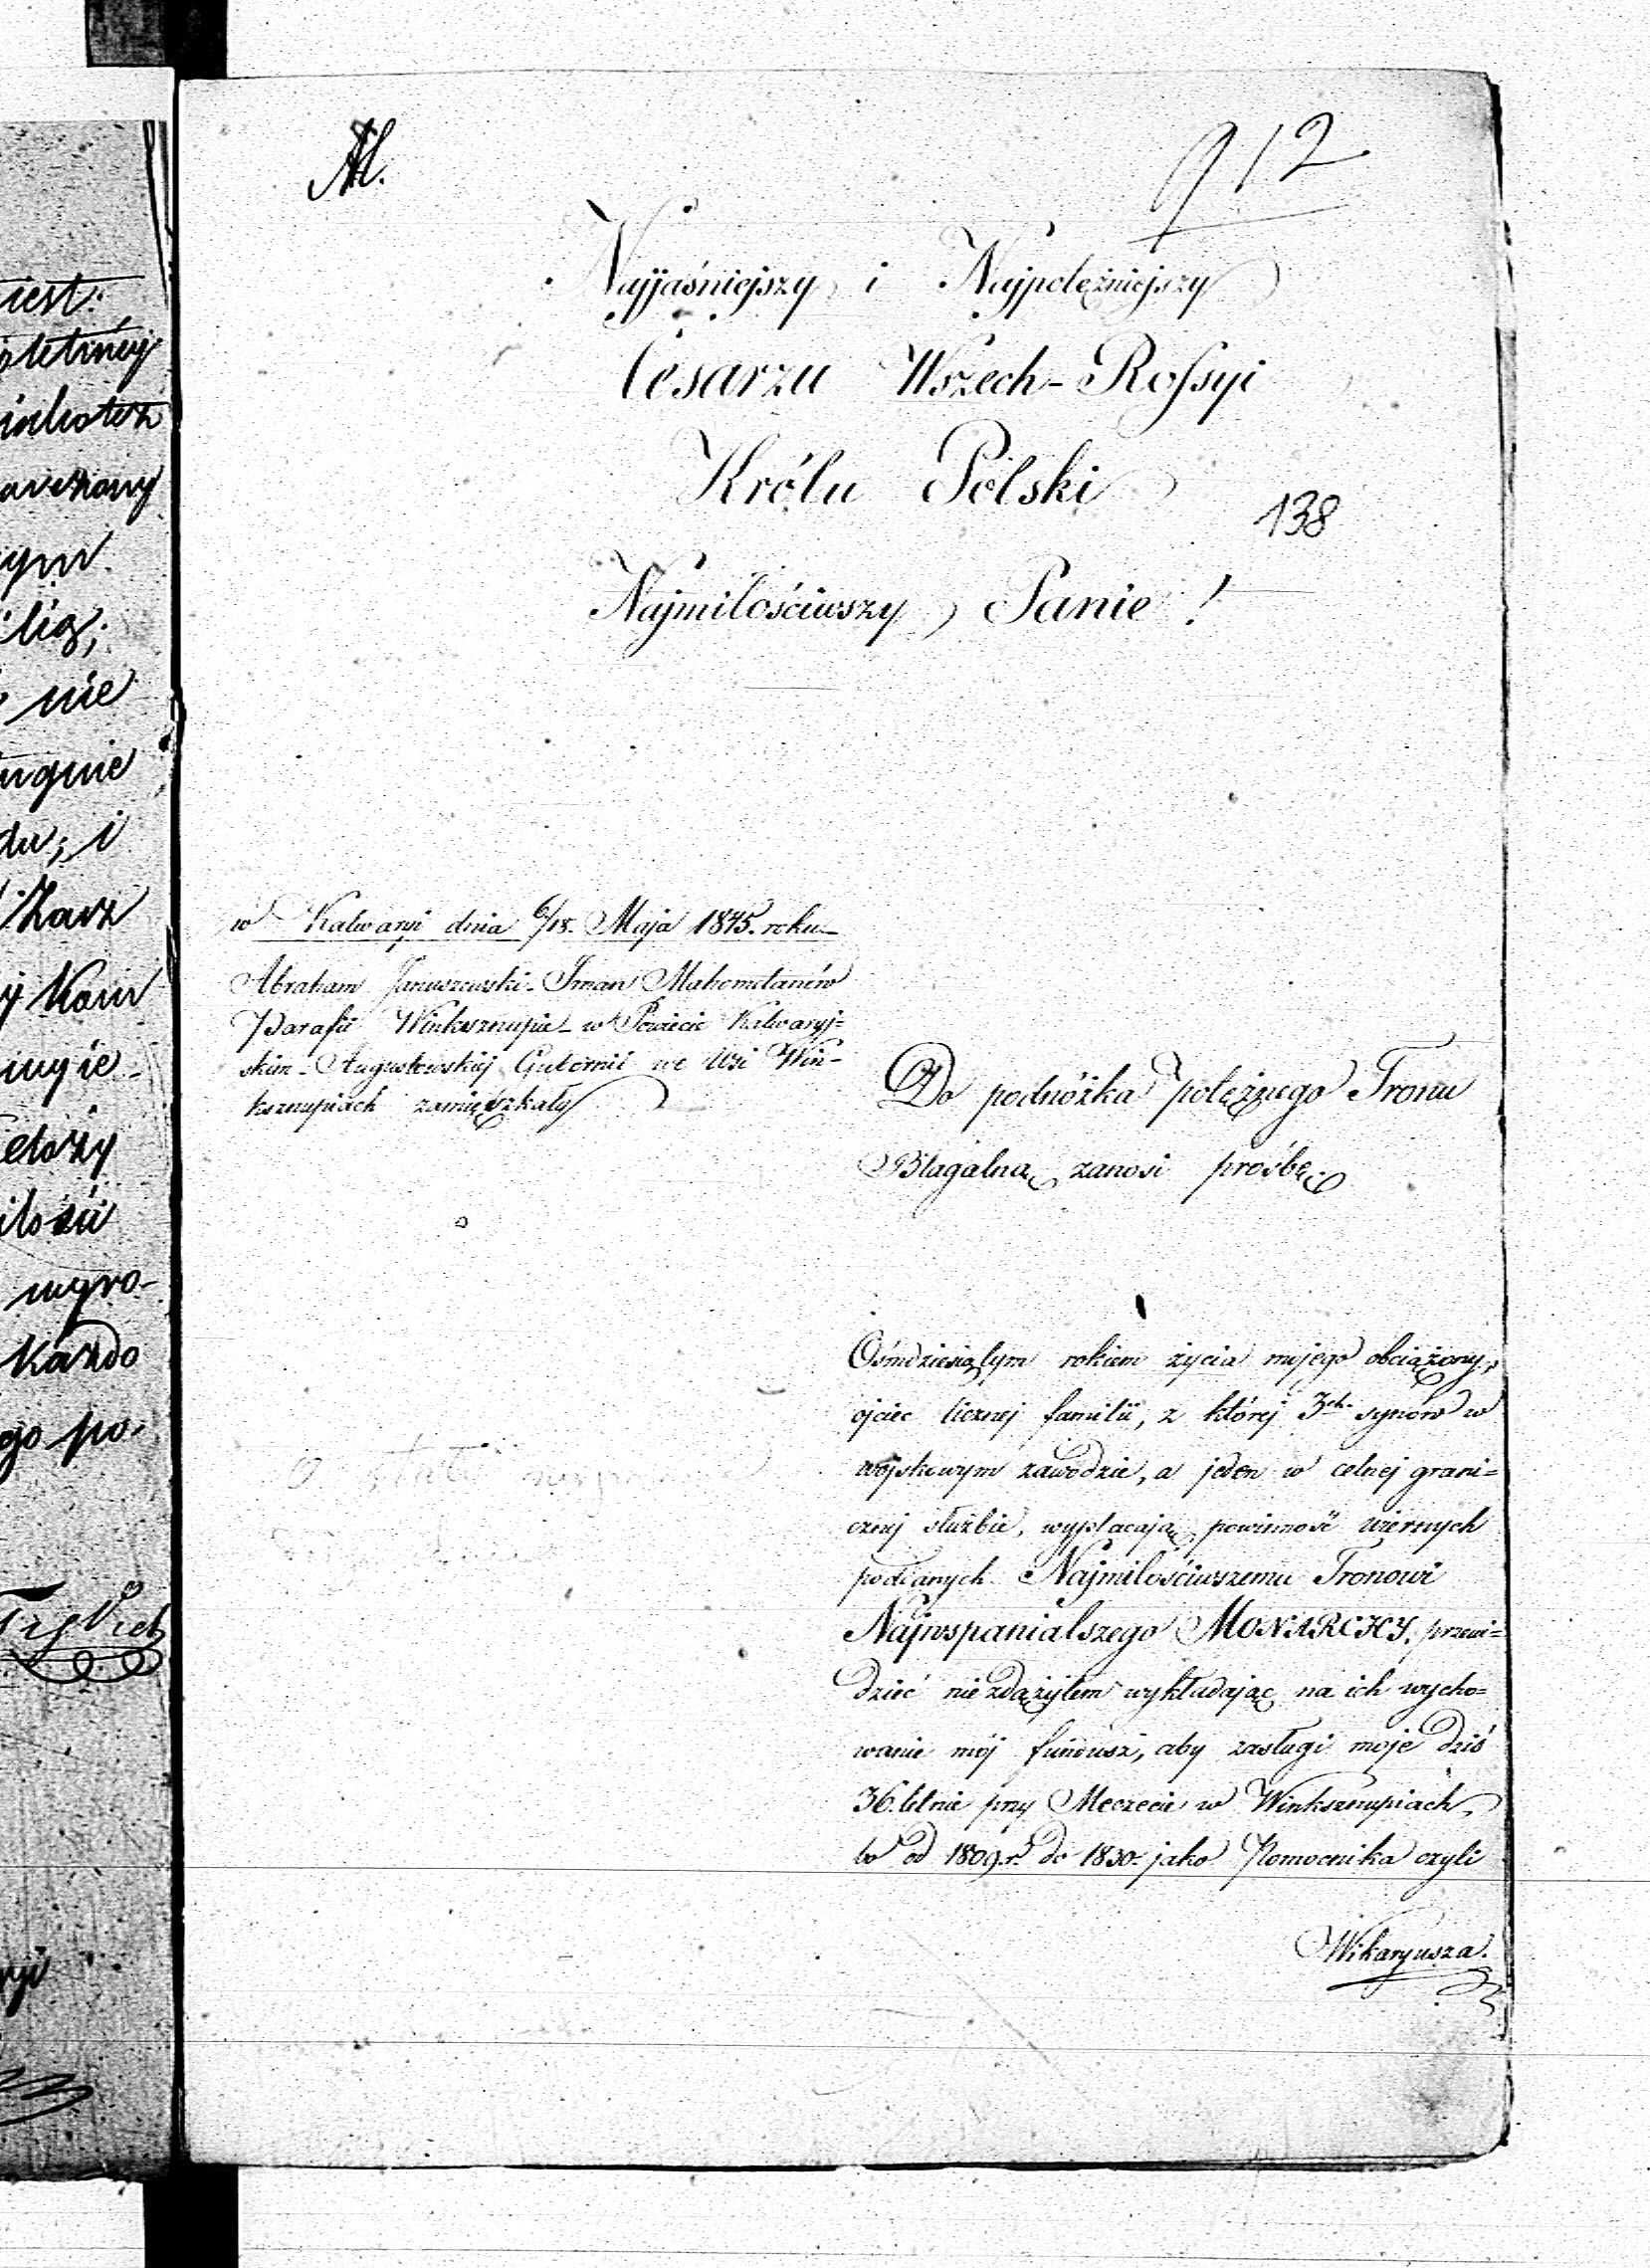 iest.
nie
du; i
Każdo
go po,
M.
912
Najjaśniejszy i Najpotężniejszy
Cesarzu Wszech-Rossyi
Królu Polski
138
Najmiłościwszy Panie!
w Kalwaryi dnia 6/18. Maja 1845. roku
Abraham Januszewski - Iman Mahometanów
Parafii Winksznupie - w Powiecie Kalwaryj=
skim - Augustowskiéj Gubernii we Wsi Win=
ksznupiach zamieszkały
Do podnóżka potężnego Tronu
Błagalną zanosi prośbę.
Ośmdziesiątym rokiem życia mojego obciążony,
ojciec licznej familii, z której 3ch synów w
wojskowym zawodzie, a jeden w celnej grani=
cznej służbie, wypłacają powinność wiernych
poddanych Najmiłościwszemu Tronowi
Najwspanialszego MONARCHY, przewi=
dzieć nie zdążyłem wykładając na ich wycho=
wanie mój fundusz, aby zasługi moje dziś
36.letnie przy Meczecie w Winksznupiach,
bo od 1809.r. do 1830. jako Pomocnika czyli
Wikaryusza.